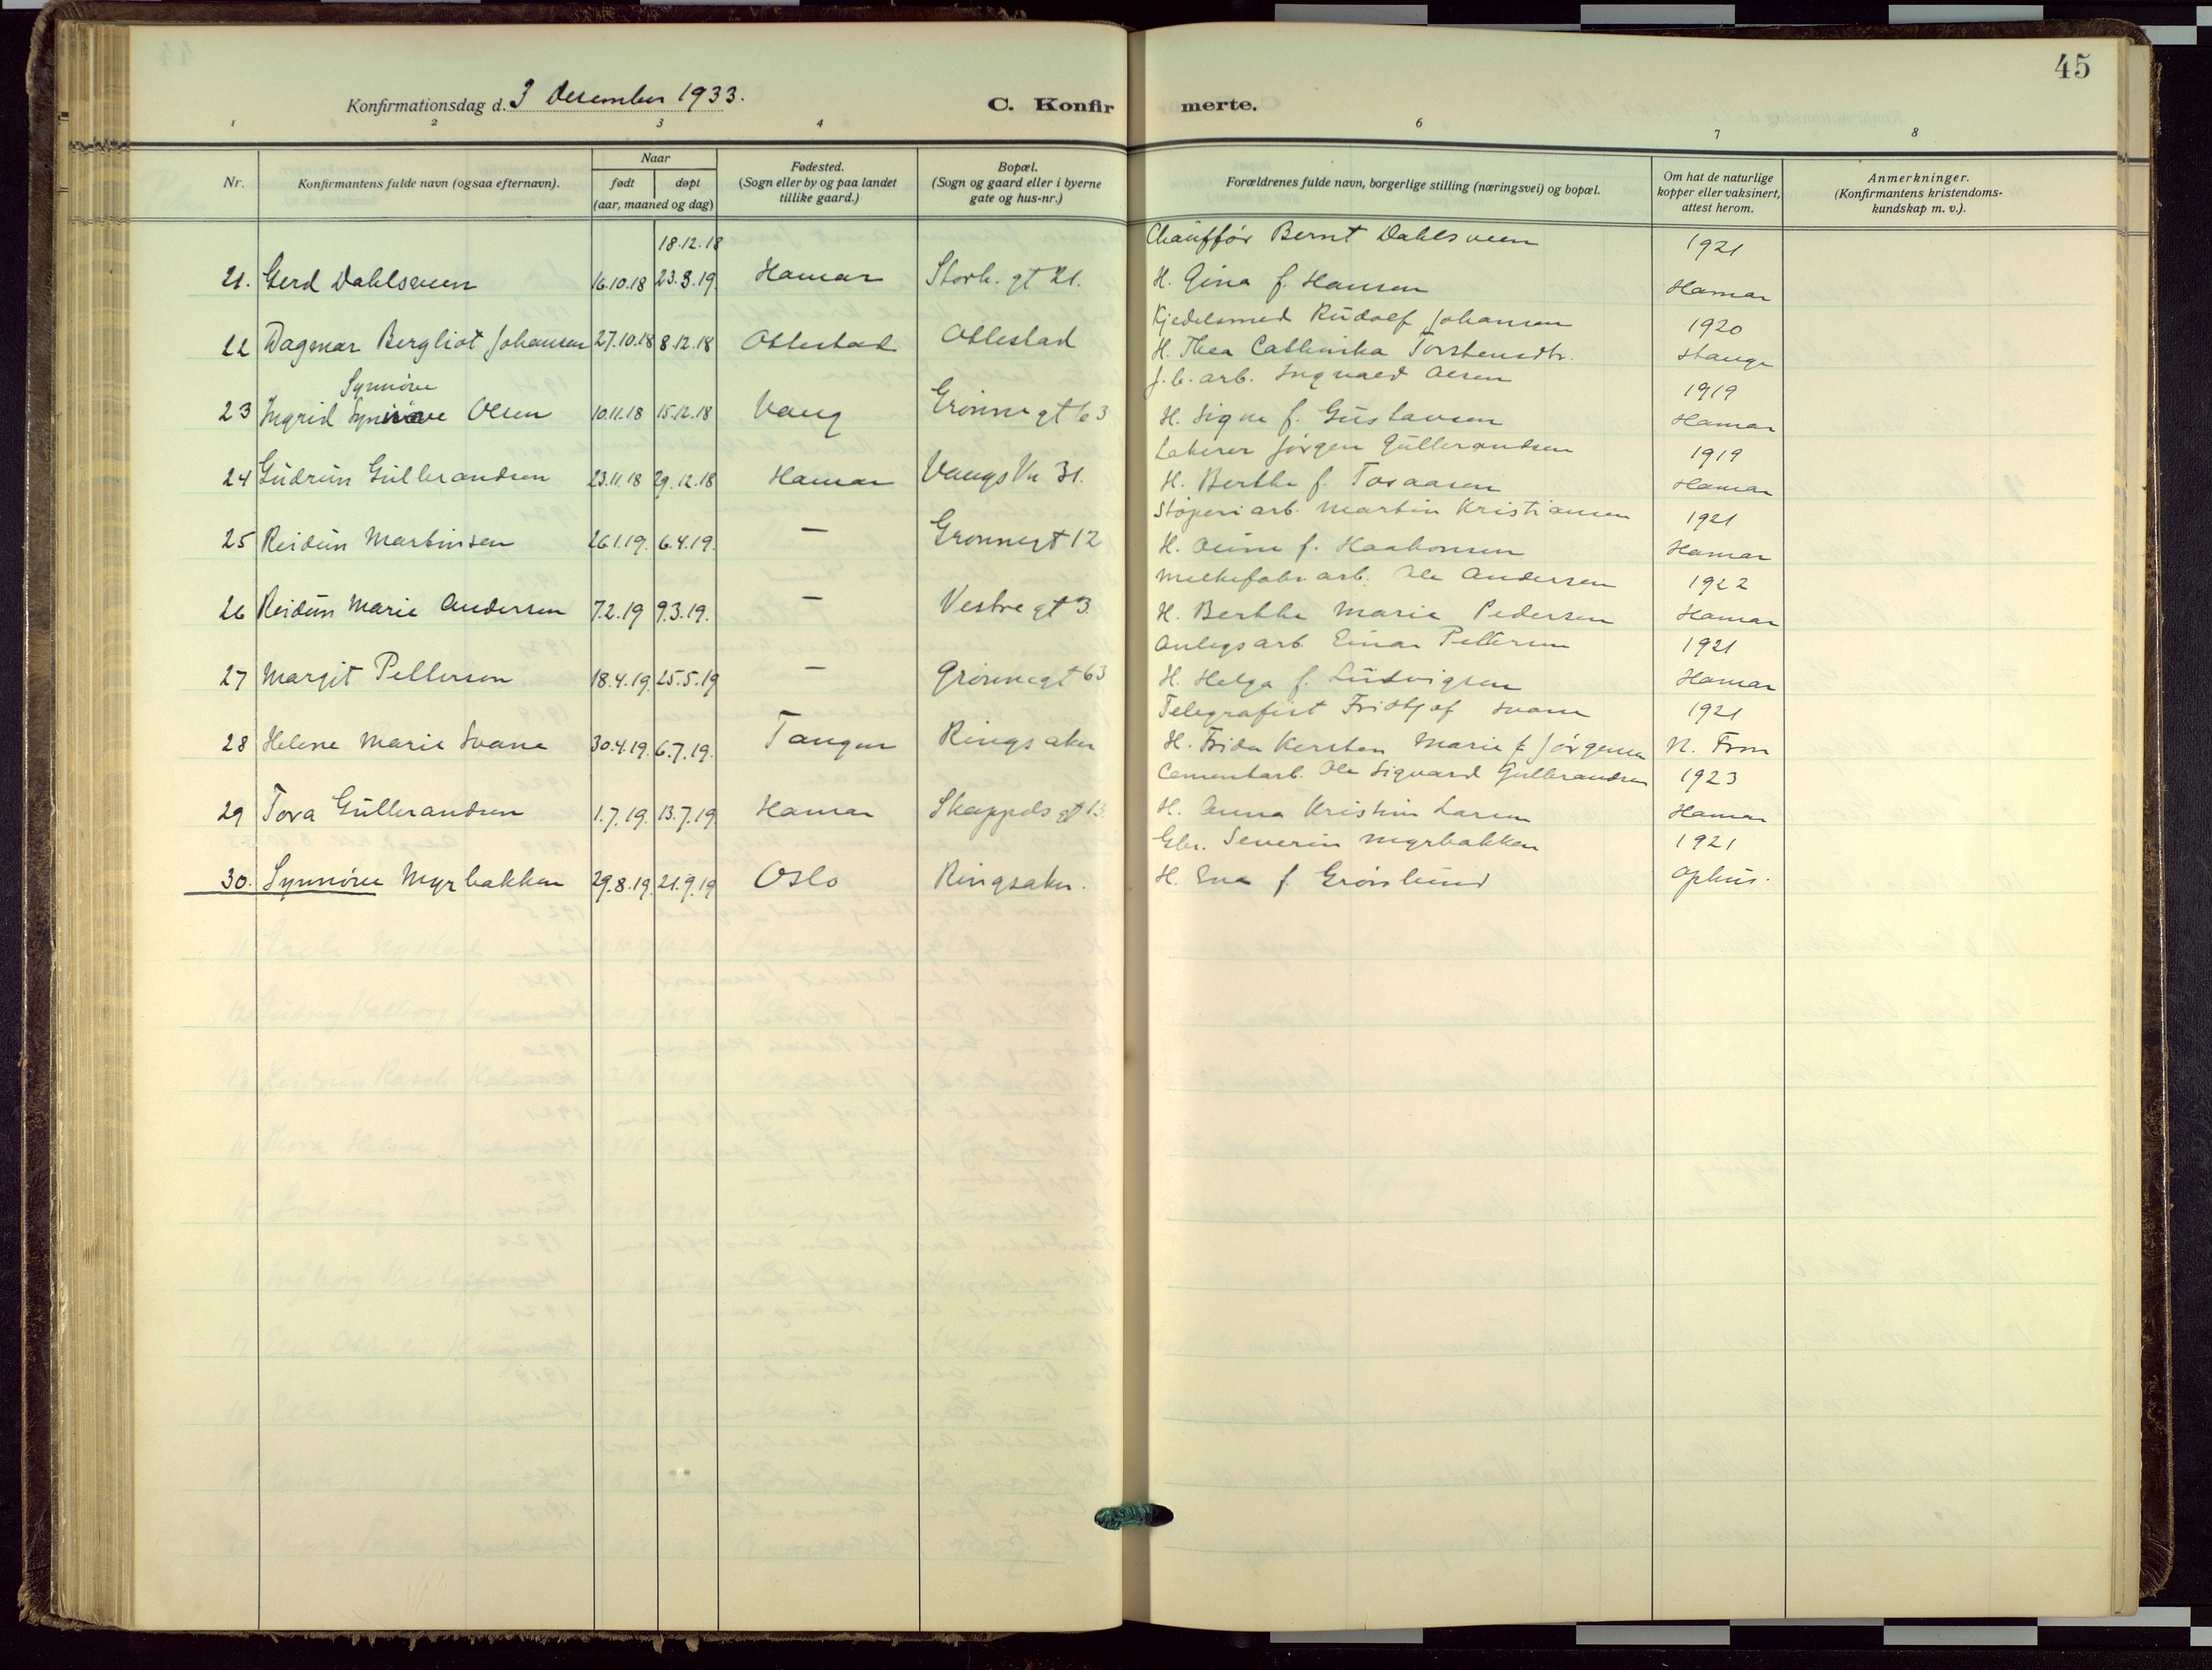 45
Konfirmationsdag d. 3 Desember 1933.
C. Konfirmerte.
1 2 3 4 6 7 8
Nr.
Konfirmantens fulde navn (ogsaa efternavn).
Naar
født
døpt
(aar, maaned og dag)
Fødested.
(Sogn eller by og paa landet
tillike gaard.)
Bopæl.
(Sogn og gaard eller i byerne
gate og hus-nr.)
Forældrenes fulde navn, borgerlige stilling (næringsvei) og bopæl.
Om hat de naturlige
kopper eller vaksinert,
attest herom.
Anmerkninger.
(Konfirmantens kristendoms-
kundskap m. v.).
18.12.18 Chauffør Bernt Dahlsveen 1921
21. Gerd Dahlsveen 16.10.18 23.3.19. Hamar Storh. gt 21. H. Gina f. Hansen Hamar
Kjedelsmed Rudolf Johansen 1920
22 Dagmar Bergliot Johansen 27.10.18 8.12.18 Ottestad Ottestad H. Thea Cathinka Torstensdtr. Stange
Synnøve J.b.arb. Ingvald Olsen 1919
23 Ingrid Synnøve Olsen 10.11.18 15.12.18 Vang Grønnegt 63 H. Signe f. Gustavsen Hamar
Lakerer Jørgen Gullerandsen 1919
24 Gudrun Gullerandsen 23.11.18 29.12.18 Hamar Vangs Vn 31. H. Berthe f. Toraasen Hamar
Støperiarb. Martin Kristiansen 1921
25 Reidun Martinsen 26.1.19. 6.4.19. — Grønnegt 12 H. f. Haakonsen Hamar
Melkefabr.arb. Ole Andersen 1922
26 Reidun Marie Andersen 7.2.19 9.3.19. — Vestregt 3 H. Berthe Marie Pedersen Hamar
Anlegsarb. Einar Pettersen 1921
27 Margit Pettersen 18.4.19. 25.5.19 — Grønnegt 63 H. Helga f. Ludvigsen Hamar
Telegrafist Fridtjof Svane 1921
28 Helene Marie Svane 30.4.19. 6.7.19. Tangen Ringsaker H. Frida Kersten Marie f. Jørgensen N. Fron
Cementarb. Ole Sigvard Gullerandsen 1923
29 Tora Gullerandsen 1.7.19. 13.7.19. Hamar Skappels gt 13. H. Anna Kristine Larsen Hamar
Gbr. Severin Myrbakken 1921
30. Synnøve Myrbakken 29.8.19. 21.9.19 Oslo Ringsaker. H. Eva f. Grønlund Ophus.